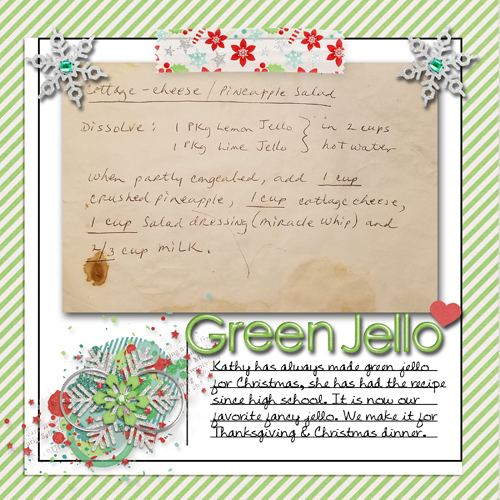 Cottage-cheese / Pineapple Salad
Dissolve: 1 Pkg Lemon Jello } in 2 cups
1 Pkg Lime Jello } hot water
When partly congealed, add 1 cup
crushed pineapple, 1 cup cottage cheese,
1 cup Salad dressing (miracle whip) and
2/3 cup milk.
Green Jello
Kathy has always made green jello
for Christmas, she has had the recipe
since high school. It is now our
favorite fancy jello. We make it for
Thanksgiving & Christmas dinner.